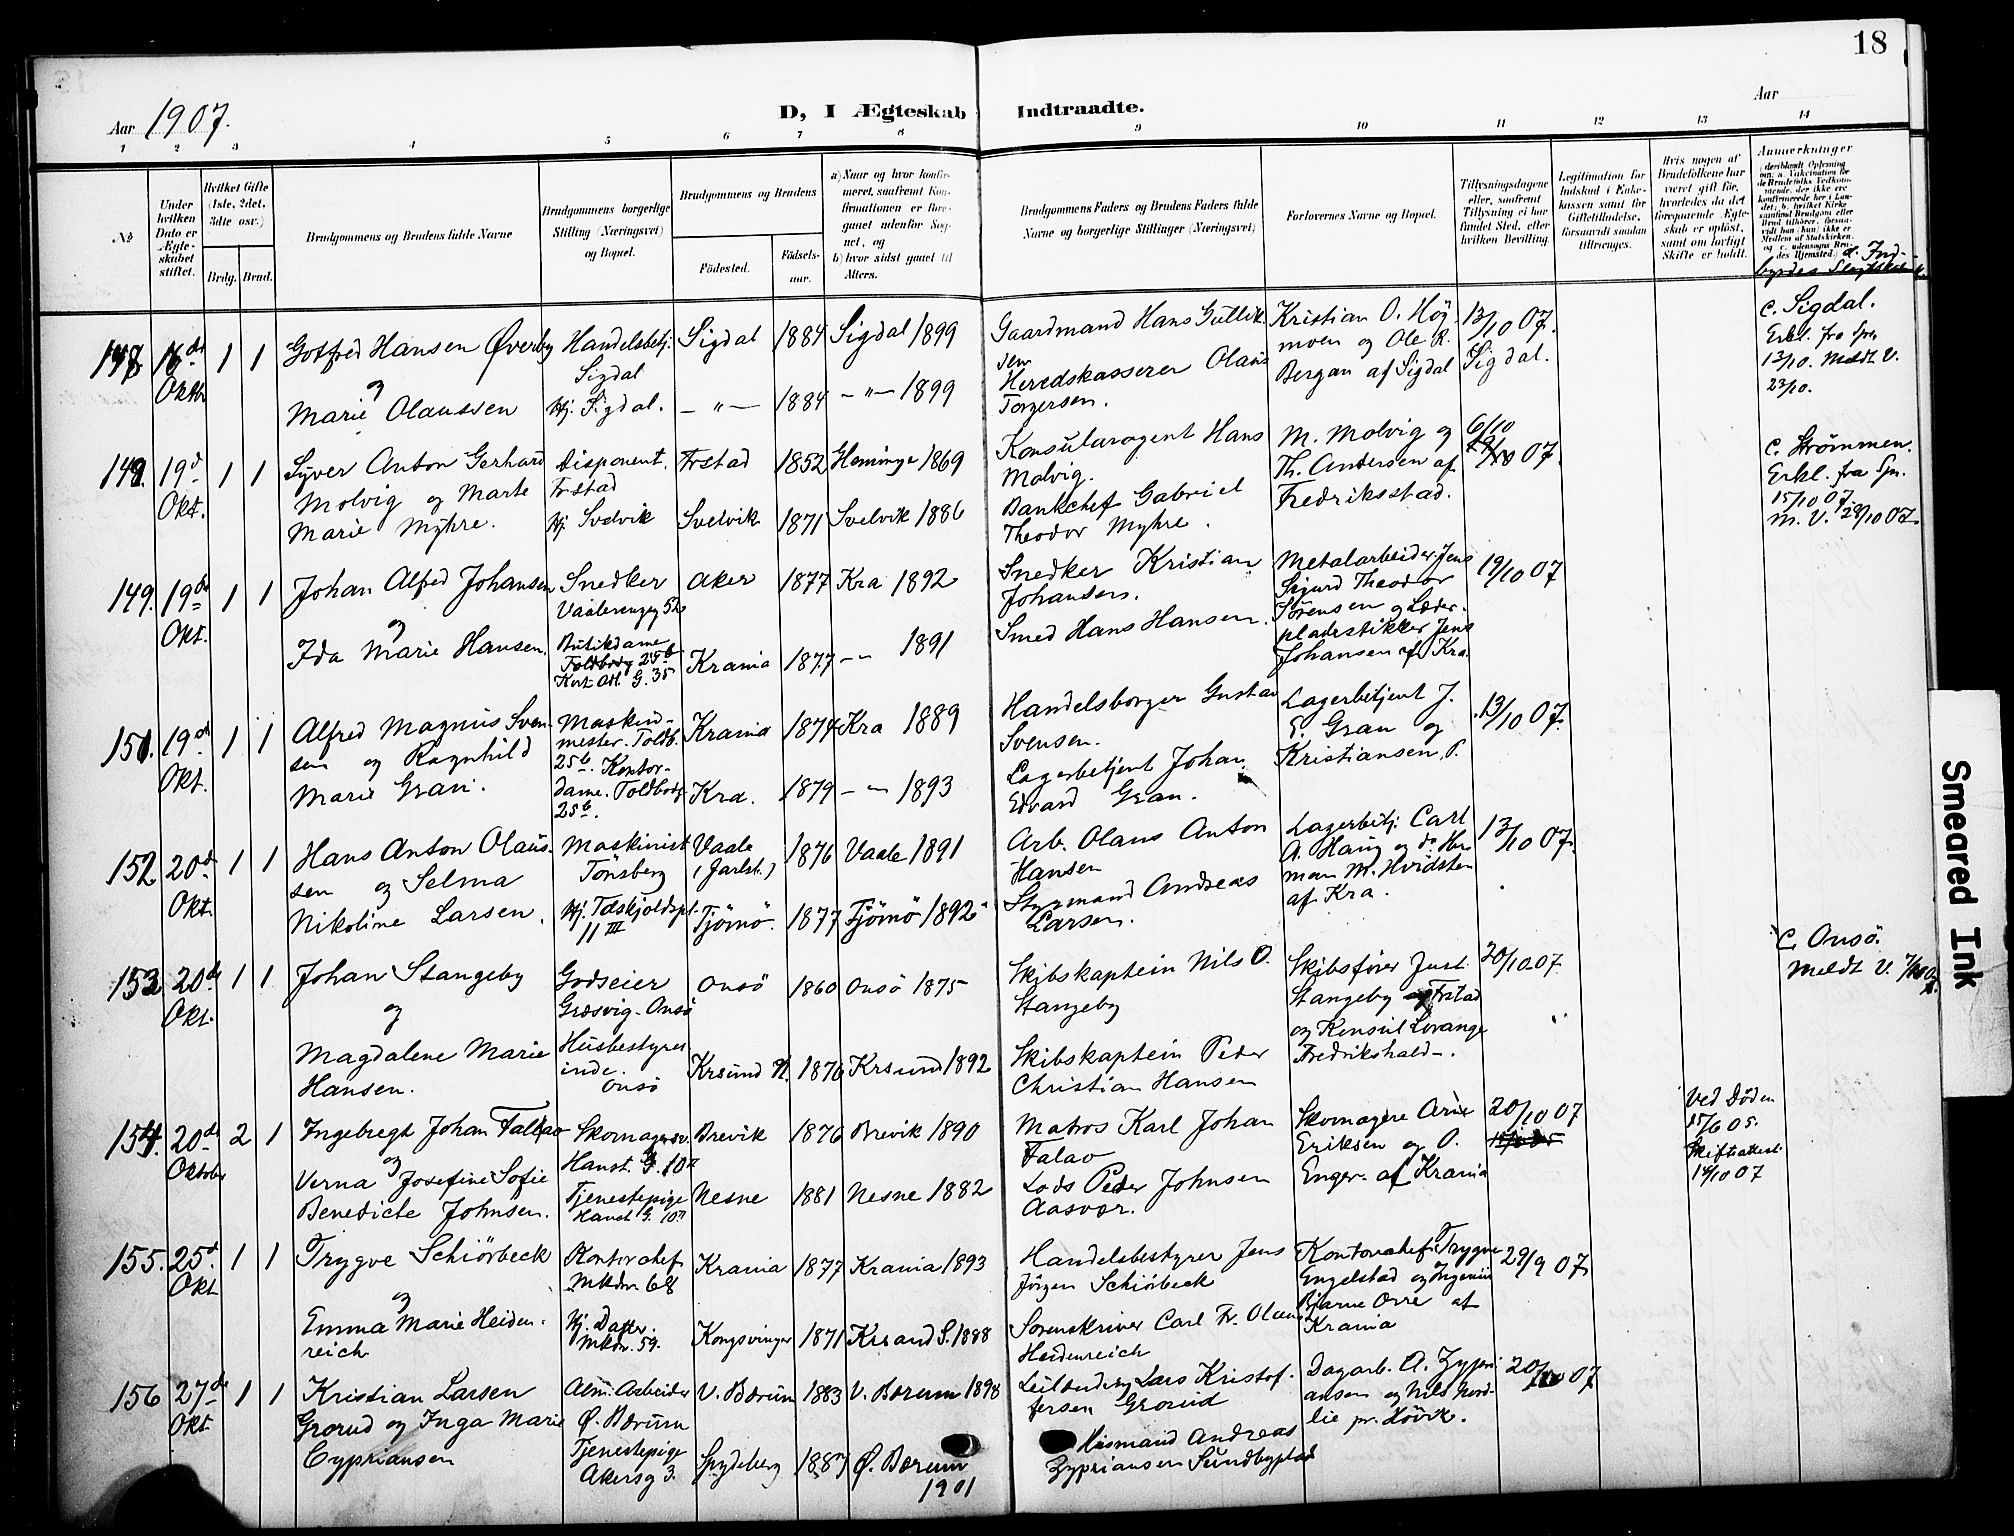 18
Aar 1907.
D, I Ægteskab Indtraadte.
Aar
1 2 3 4 5 6 7 8 9 10 11 12 13 14
No
Under hvilken Dato er Ægteskabet stiftet.
Hvilket Gifte (1ste, 2det, 3die osv.)
Brdg. Brud.
Brudgommens og Brudens fulde Navne
Brudgommens borgerlige Stilling (Næringsvei) og Bopæl.
Brudgommens og Brudens
Fødested. Fødselsaar.
a) Naar og hvor konfirmeret, saafremt Konfirmationen er foregaaet udenfor Sognet, og
b) hvor sidst gaaet til Alters.
Brudgommens Faders og Brudens Faders fulde Navne og borgerlige Stillinger (Næringsvei)
Forlovernes Navne og Bopæl.
Tillysningsdagene eller, saafremt Tillysning ei har fundet Sted, efter hvilken Bevilling.
Legitimation for Indskud i Enkekassen samt for Giftetilladelse, forsaavidt saadan tiltrænges.
Hvis nogen af Brudefolkene har været gift før, hvorledes da det foregaaende Ægteskab er opløst, samt om lovligt Skifte er holdt.
Anmerkninger
147 16de Oktbr 1 1 Gotfred Hansen Øverby Handelsbetj. Sigdal Sigdal 1884 Sigdal 1899 Gaardmand Hans Gullik-sen Kristian O. Høgmoen og Ole R. Bergan af Sigdal 13/10 07. Sigdal. c. Sigdal. Erkl. fra Spr. 12/10. Meldt V. 23/10.
og
Marie Olaussen Hj. Sigdal. — " — 1884 — " — 1899 Heredskasserer Olaus Torgersen.
148. 19d Okt. 1 1 Syver Anton Gerhard Molvig og Marte Disponent. Frstad Frstad 1852 1869 Konsularagent Hans Molvig. M. Molvig og Th. Andersen af Fredriksstad. 6/10 07. c. Strømmen. Erkl. fra Spr. 15/10 07.
Marie Myhre. Hj. Svelvik Svelvik 1871 Svelvik 1886 Bankchef Gabriel Theodor Myhre.
149. 19de Okt. 1 1 Johan Alfred Johansen Snedker Aker 1877 Kra 1892 Snedker Kristian Johansen. Metalarbeider Jens Sigurd Theodor Sørensen og Læderpladestikker Jens Johansen af Kra. 19/10 07
og
Ida Marie Hansen. Butikdame Toldbodg 25b Krania 1877 — " — 1891 Smed Hans Hansen.
151. 19d Okt. 1 1 Alfred Magnus Svensen og Ragnhild Maskinmester. Toldb. 25b. Krania 1874 Kra 1889 Handelsborger Gustav Svensen. Lagerbetjent J. E. Gran og Kristiansen. 13/10 07.
Marie Gran. Kontordame. Toldbodg. 25b. Kra. 1879 — " — 1893 Lagerbetjent Johan Edvard Gran.
152 20d Okt. 1 1 Hans Anton Olaussen og Selma Maskinist Tönsberg Vaale (Jarlsb.) 1876 Vaale 1891 Arb. Olaus Anton Hansen Lagerbetj. Carl A. Haug og do Herman M. Hvidsten af Kra. 13/10 07.
Nikoline Larsen. Hj. 11 III Tjömö. 1877 Tjömö 1892 Styrmand Andreas Larsen.
153 20de Okt. 1 1 Johan Stangeby Godseier Græsvig. Onsö Onsö 1860 Onsö 1875 Skibskaptein Nils O. Stangeby Skibsfører Just Stangeby Frstad og Konsul Lorange Fredrikshald. 20/10 07. c. Onsö. Meldt V.
og
Magdalene Marie Hansen. Husbestyrerinde. Onsö Krsund N. 1876 Krsund 1892 Skibskaptein Peder Christian Hansen
154. 20de Oktober 2 1 Ingebregt Johan Falao Skomagersv. Brevik 1876 Brevik 1890 Matros Karl Johan Falao Skomagere Arne Eriksen og O. Enger. af Krania 20/10 07 Ved Døden 15/6 05. Skifteattest. 14/10 07
og
Verna Josefine Sofie Benedicte Johnsen. Tjenestepige Nesne 1881 Nesne 1882 Lods Peder Johnsen Aasvær.
155. 25d. Okt. 1 1 Trygve Schiörbeck Kontorchef Mkdn. 68 Krania 1877 Krania 1893 Handelsbestyrer Jens Jörgen Schiörbeck Kontorchef Trygve Engelstad og Ingeniør Bjarne Orre af Krania 29/9 07.
og
Emma Marie Heidenreich Hj. Datter. Mkdn. 59. Kongsvinger 1871 Krsand S. 1888 Sorenskriver Carl Fr. Olaus Heidenreich
156 27de Okt. 1 1 Kristian Larsen Grorud og Inga Marie Alm. Arbeider Ø. Bærum V. Bærum 1883 V. Bærum 1898 Lars Kristoffersen Grorud Dagarb. A. Zypriansen og Nils Nordlie pr. Hövik. 20/10 07
Cypriansen Tjenestepige Akersg 3. Spydeberg 1887 Ø. Bærum 1901 Husmand Andreas Zypriansen
Smeared Ink